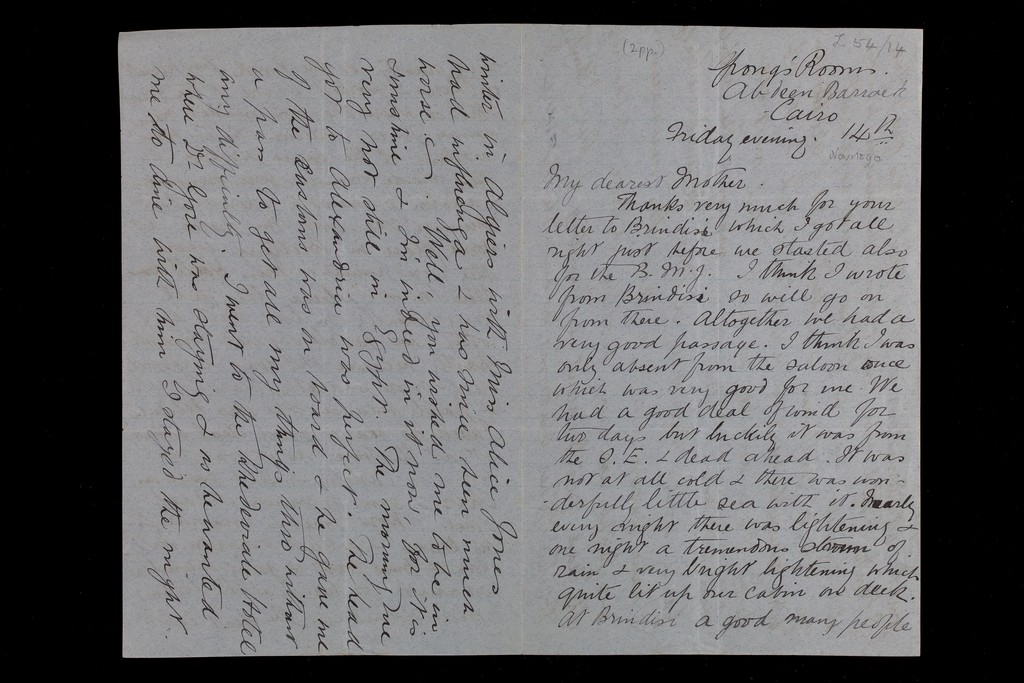 (2pp.)
L 54/14
Spong's Rooms.
Abdeen Barrack
Cairo
Friday evening. 14th
My dearest Mother.
Thanks very much for your
letter to Brindisi which I got all
right just before we started also
for the B.M.J. I think I wrote
from Brindisi so will go on
from there. Altogether we had a
very good passage. I think I was
only absent from the saloon once
which was very good for me. We
had a good deal of wind for
two days but luckily it was from
the S.E. & dead ahead. It was
not at all cold & there was won-
-derfully little sea with it. Nearly
every night there was lightening &
one night a tremendous storm of
rain & very bright lightening which
quite lit up our cabin on deck.
At Brindisi a good many people
winter in Algiers with Miss Alice Jones
had influenza & has since been much
worse. Well, you wished me to be in
sunshine & I'm indeed in it now, for it is
very hot still in Egypt. The morning we
got to Alexandria was perfect. The head
of the Customs was on board & he gave me
a pass to get all my things thro without
any difficulty. I went to the Khedeviale Hotel
where Dr was staying & as he wanted
me to dine with him I stayed the night.